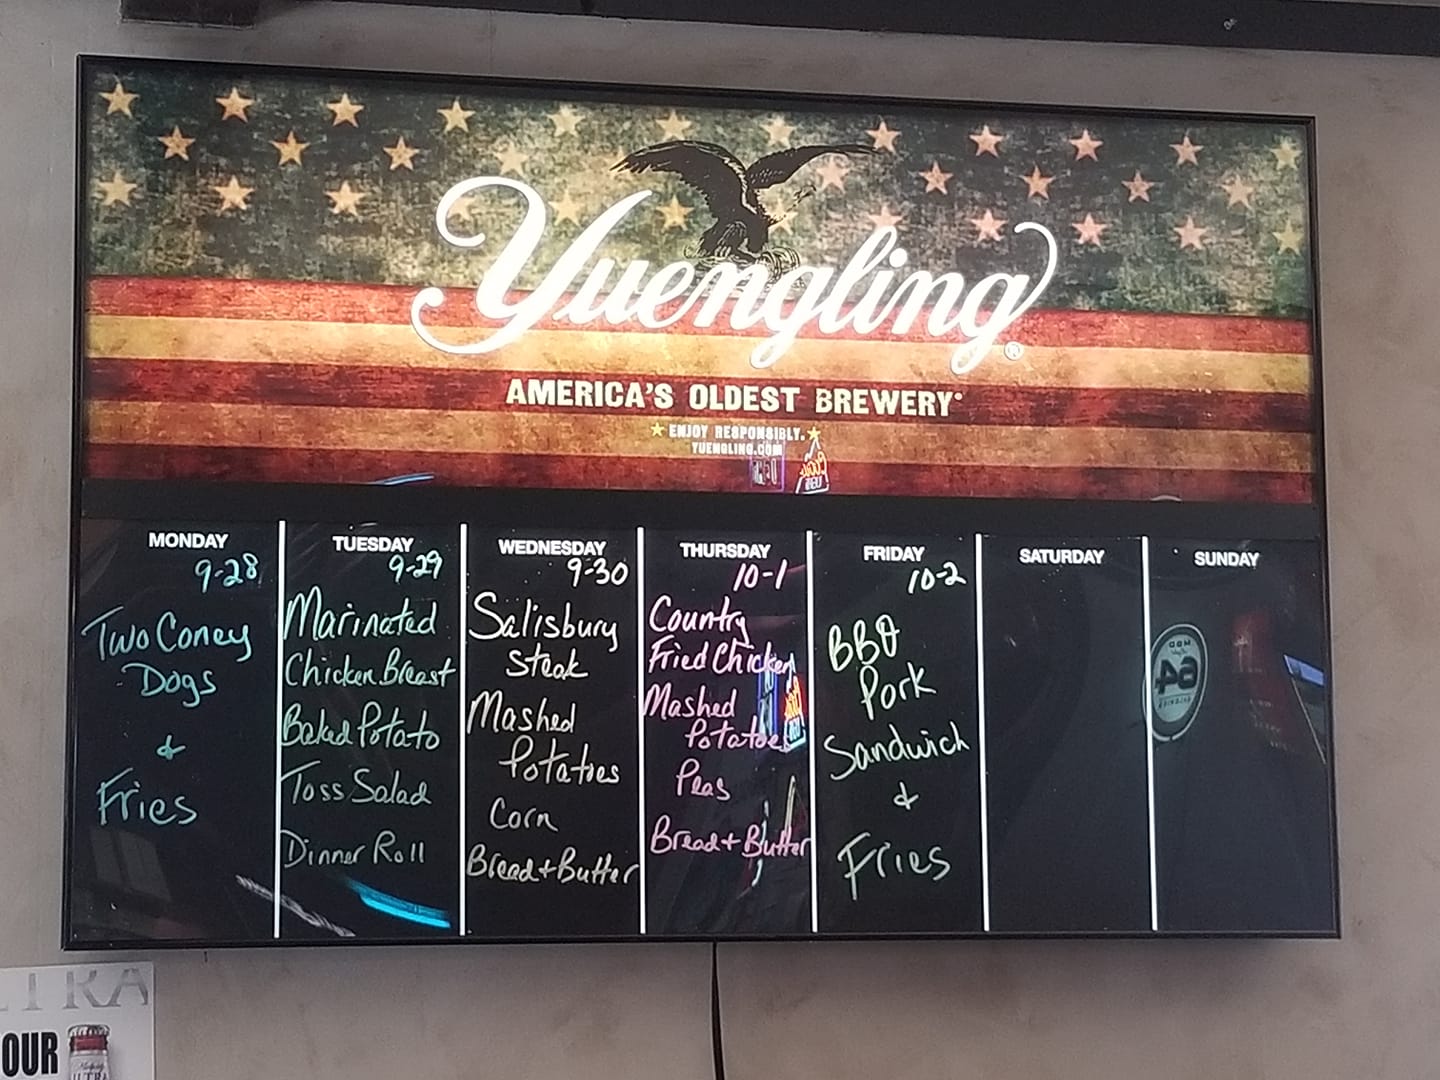 Yuengling®
AMERICA'S OLDEST BREWERY®
ENJOY RESPONSIBLY.
YUENGLING.COM
MONDAY
9-28
Two Coney
Dogs
&
Fries
TUESDAY
9-29
Marinated
Chicken Breast
Baked Potato
Toss Salad
Dinner Roll
WEDNESDAY
9-30
Salisbury
Steak
Mashed
Potatoes
Corn
Bread + Butter
THURSDAY
10-1
Country
Fried Chicken
Mashed
Potatoes
Peas
Bread + Butter
FRIDAY
10-2
BBQ
Pork
Sandwich
&
Fries
SATURDAY
SUNDAY
64
TRA
OUR
ULTRA